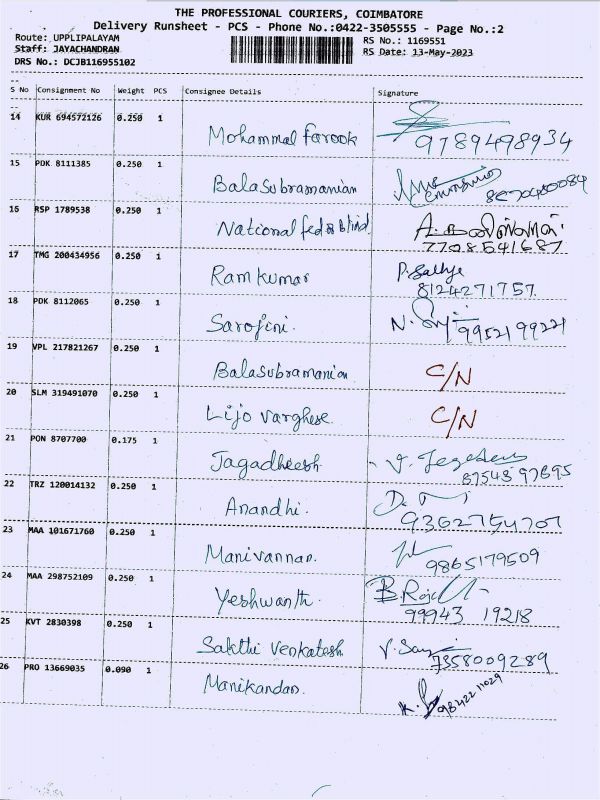 THE PROFESSIONAL COURIERS, COIMBATORE
Delivery Runsheet - PCS - Phone No.:0422-3505555 - Page No.:2
Route: UPPLIPALAYAM RS No.: 1169551
Staff: JAYACHANDRAN RS Date: 13-May-2023
DRS No.: DCJB116955102
S No Consignment No Weight PCS Consignee Details Signature
14 KUR 694572126 0.250 1
Mohammal farook 9789498934
15 PDK 8111385 0.250 1
Balasubramanian
16 RSP 1789538 0.250 1
National fed blind
7708541687
17 TMG 200434956 0.250 1
Ramkumar P. Sathya
8124271757
18 PDK 8112065 0.250 1
Sarojini. 9952199221
19 VPL 217821267 0.250 1
Balasubramanian C/N
20 SLM 319491070 0.250 1
Lijo varghese C/N
21 PON 8707700 0.175 1
Jagadheesh
87543 97695
22 TRZ 120014132 0.250 1
Anandhi.
9362754707
23 MAA 101671760 0.250 1
Manivannan. 9865179509
24 MAA 298752109 0.250 1
Yeshwanth.
99943 19218
25 KVT 2830398 0.250 1
Sakthi Venkatesh
7358009289
26 PRO 13669035 0.090 1
Manikandan.